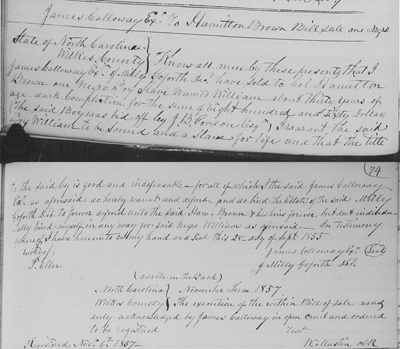 James Calloway Exr. To Hamilton Brown Bill sale one Negro
State of North Carolina
Wilkes County } Know all men by these presents that I
James Calloway Exr. of Milly Goforth Decd. have sold to Col Hamilton
Brown one Negro boy Slave named William about thirty years of
age dark Complection for the sum of eight hundred and sixty Dollars
(the said Boy was bid off by J. B. Gordon Esqr.) I warant the said
boy William to be sound and a Slave for life and that the title
79
to the said boy is good and indefeasable - for all of which I the said James Calloway
Exr. as aforesaid do hereby warant and defend and do bind the Estate of the said Milly
Goforth Decd. to forever defend unto the said Ham. Brown & his heirs forever but do not individu-
ally bind myself in any way for said Negro William as aforesaid - In testimony
whereof I have hereunto set my hand and Seal this 28 day of Sept 1855
James Calloway Exr. (Seal)
of Milly Goforth Decd.
P. Eller
(wrote on the Back)
North Carolina } November Term 1857
Wilkes County } The execution of the within Bill of sale was
duly acknowledged by James Calloway in open Court and ordered
to be registered
Test
Registered Novr. 6th 1857
W. Mastin Clk